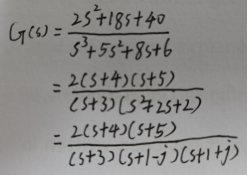 G(s) = \frac{2s^2+18s+40}{s^3+5s^2+8s+6}
= \frac{2(s+4)(s+5)}{(s+3)(s^2+2s+2)}
= \frac{2(s+4)(s+5)}{(s+3)(s+1-j)(s+1+j)}